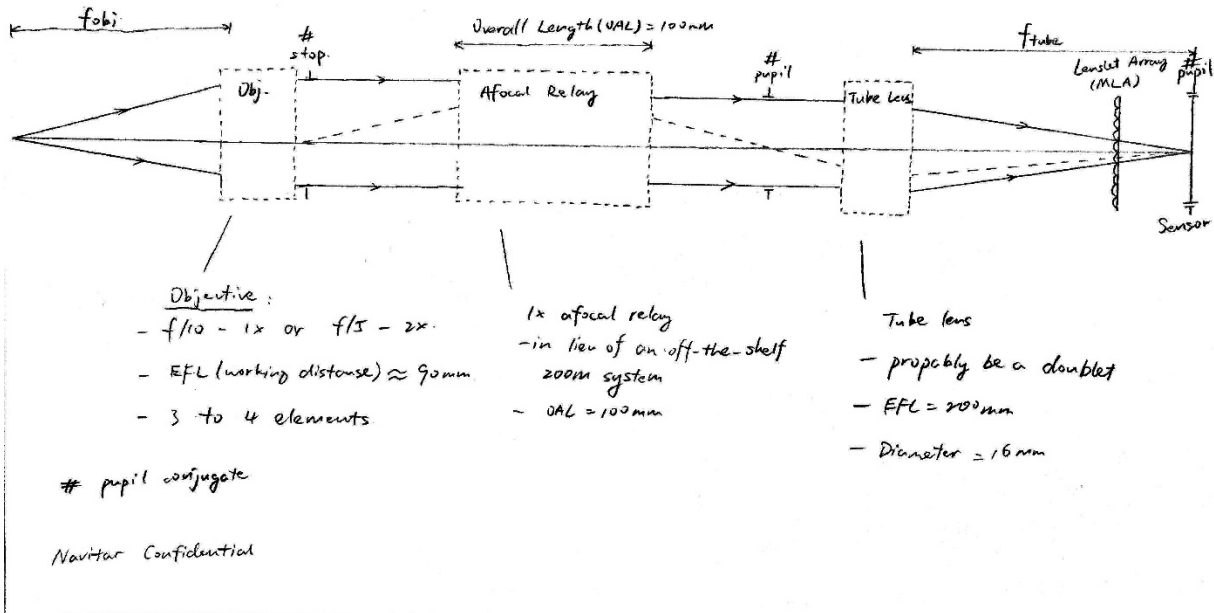 fobj
Overall Length (OAL) = 100mm
ftube
#
stop.
#
pupil
Lenslet Array
(MLA)
#
pupil
Obj.
Afocal Relay
Tube Lens
Sensor
Objective :
- f/10 - 1x or f/5 - 2x.
- EFL (working distanse) ≈ 90mm
- 3 to 4 elements
1x afocal relay
- in lieu of an off-the-shelf
zoom system
- OAL = 100mm
Tube lens
- propably be a doublet
- EFL = 200mm
- Diameter = 16mm
# pupil conjugate
Navitar Confidential